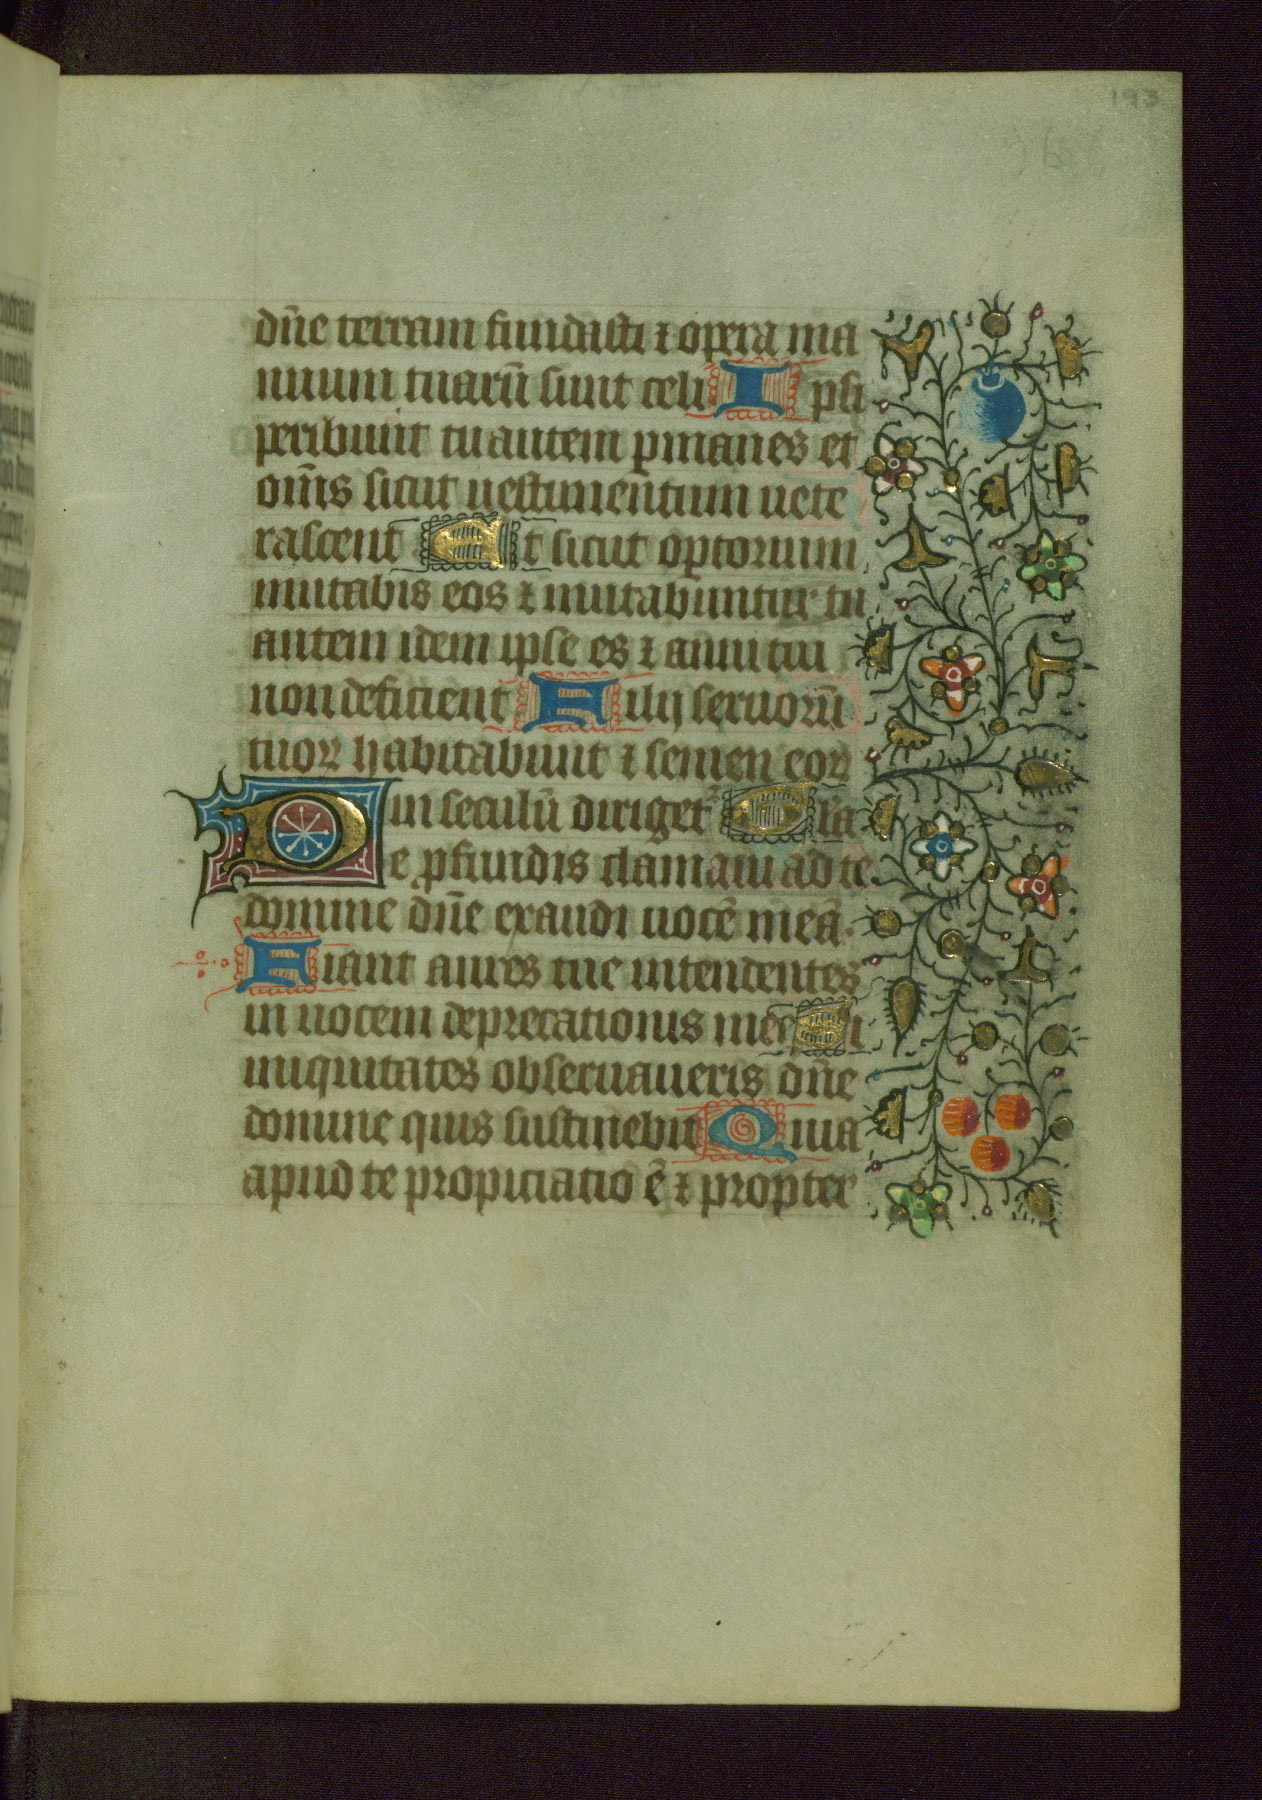 193
dn̄e terram fundasti ⁊ opera ma
nuum tuarū sunt celi Ipsi
peribunt tu autem ꝑmanes et
om̄s sicut uestimentum uete
rascent Et sicut optorium
mutabis eos ⁊ mutabuntur tu
autem idem ipse es ⁊ anni tui
non deficient Filij seruorū
tuoꝝ habitabunt ⁊ semen eoꝝ
in seculū diriget Gl'a
De ꝓfundis clamaui ad te
domine dn̄e exaudi uocē meā.
Fiant aures tue intendentes
in uocem deprecationis mee Si
iniquitates obseruaueris dn̄e
domine quis sustinebit Quia
apud te propiciatio ē ⁊ propter